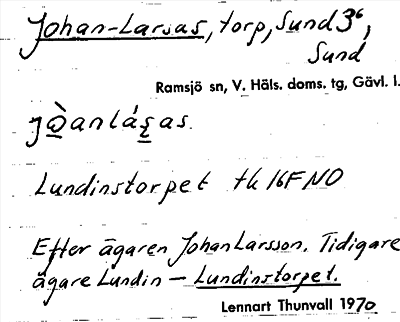 Johan-Larsas, torp, Sund 3⁶,
Sund
Ramsjö sn, V. Häls. doms. tg, Gävl. l.
Lundinstorpet tk 16F NO
Efter ägaren Johan Larsson. Tidigare
ägare Lundin – Lundinstorpet.
Lennart Thunvall 1970